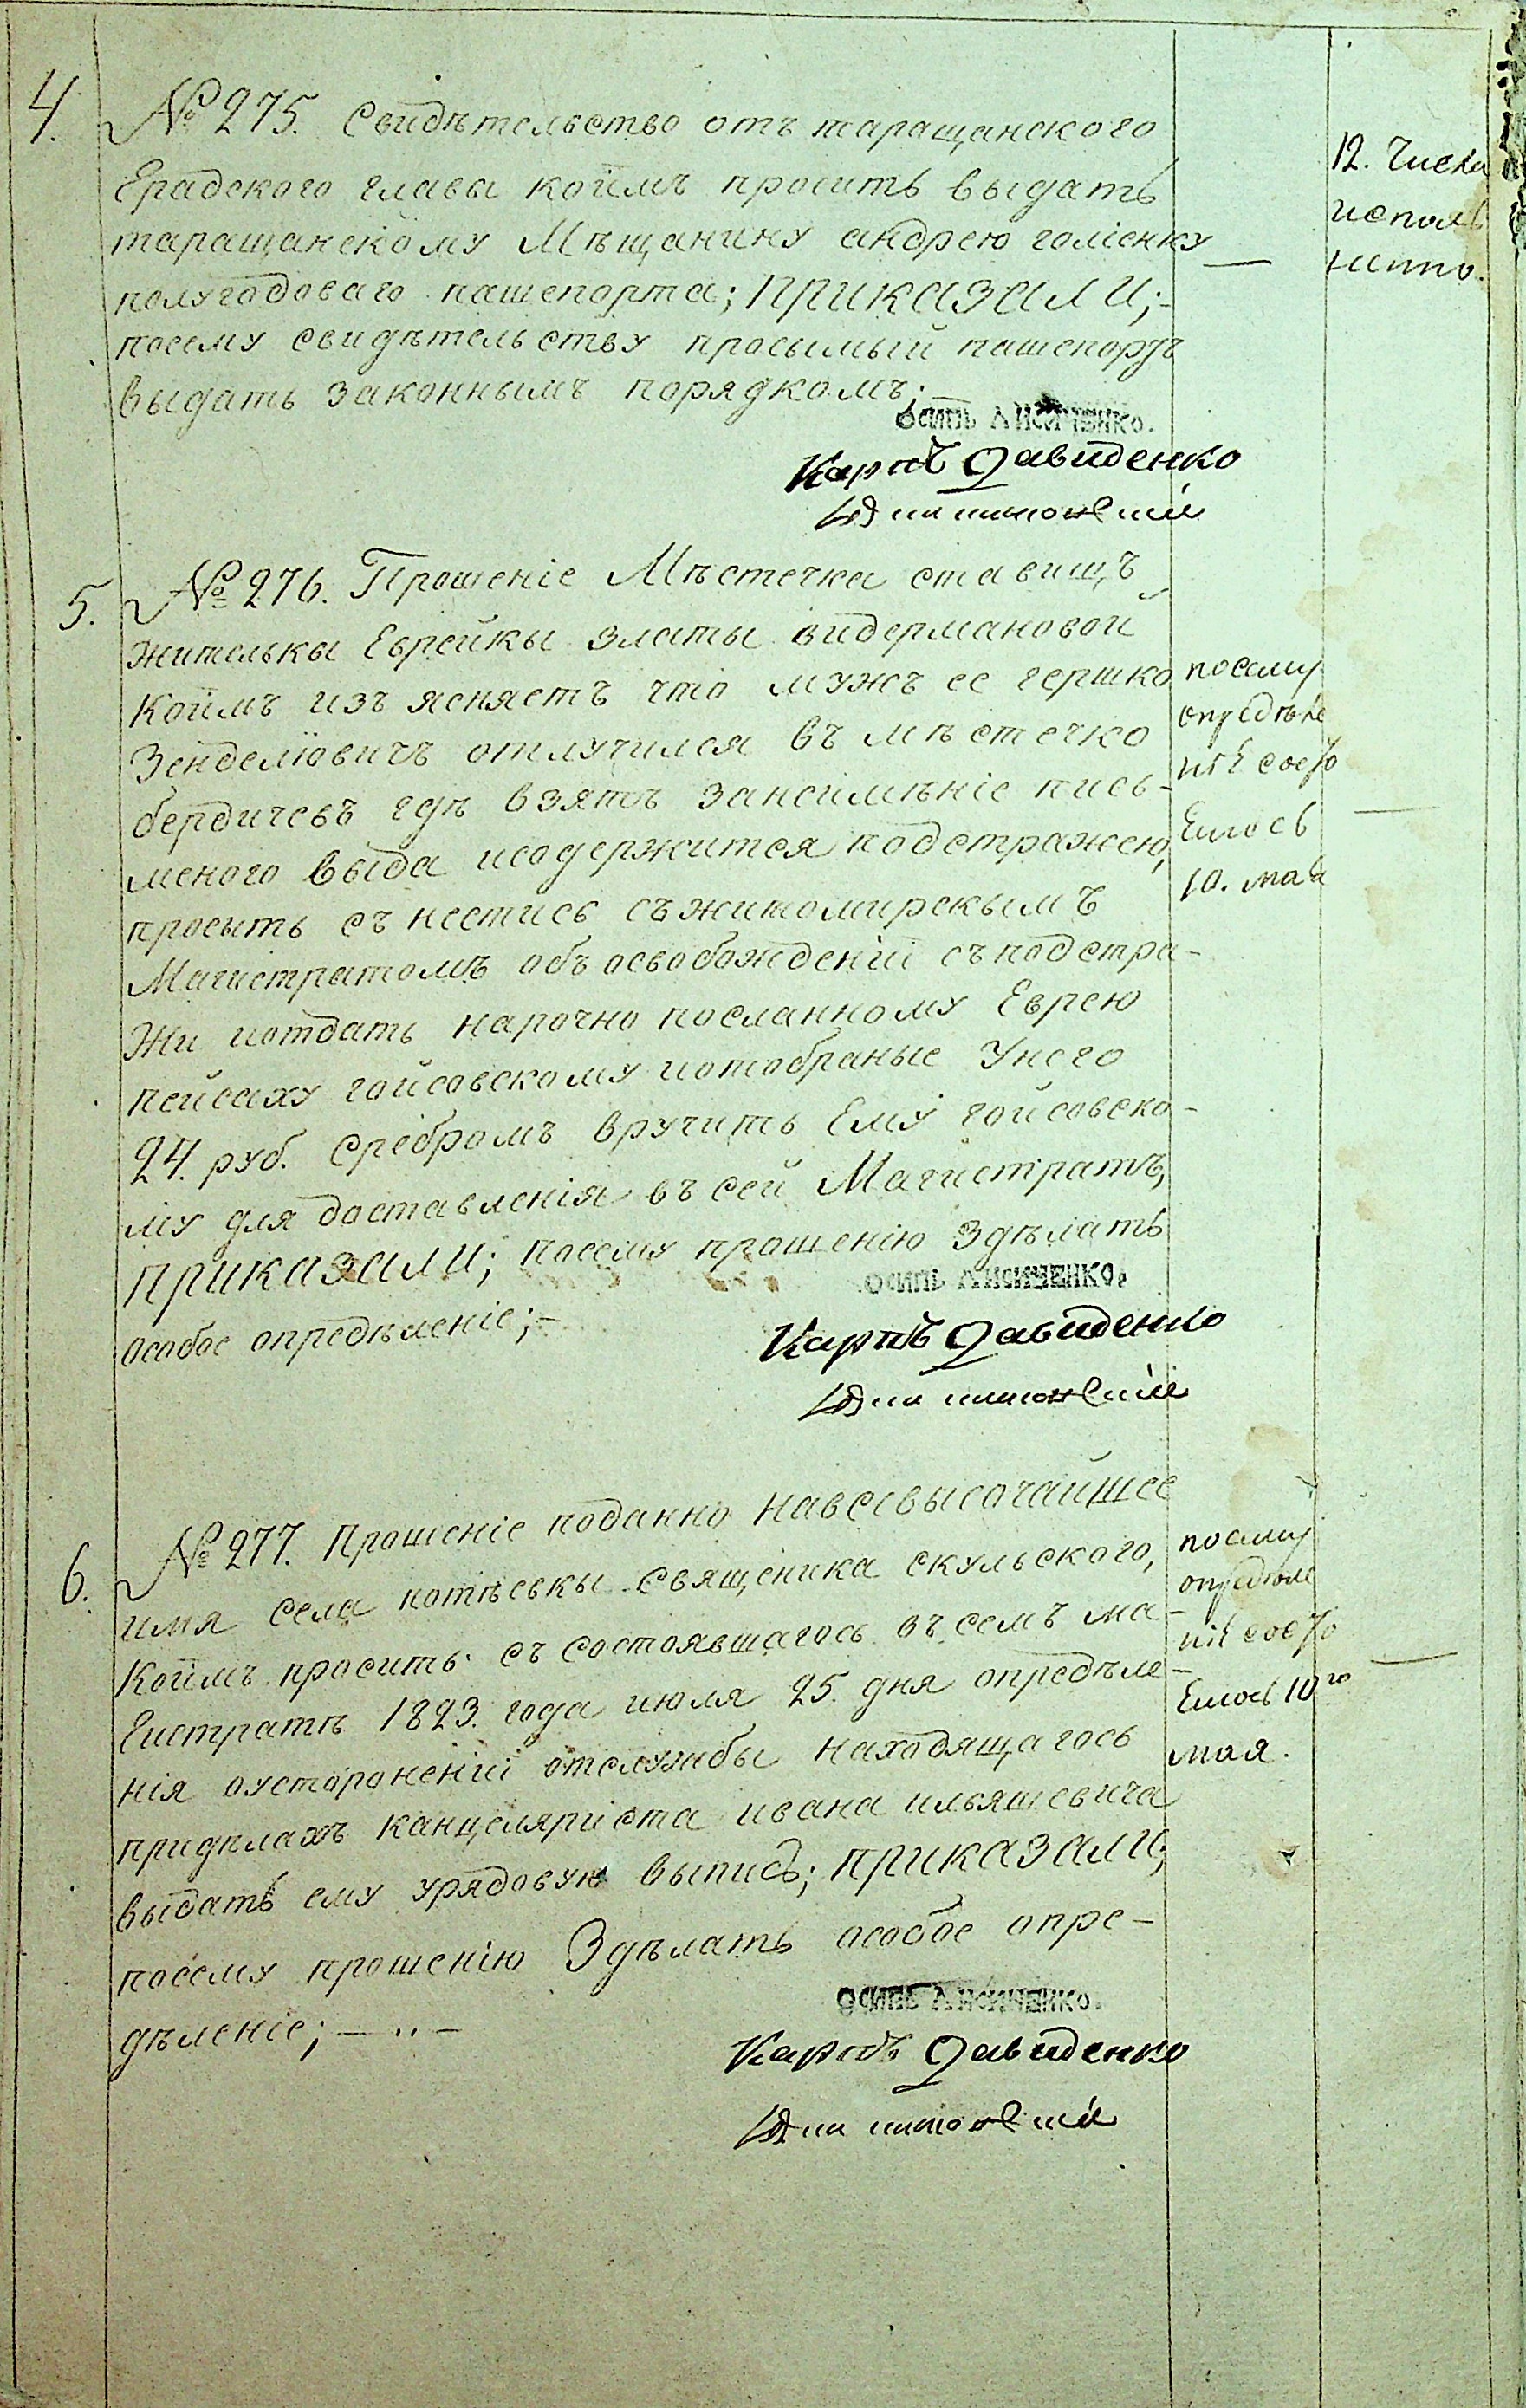 4. № 275. Свидѣтельство отъ таращанского
Градского главы коимъ проситъ выдать
таращанскому Мѣщанину андрею голіенку
полугодоваго пашепорта; приказали;-
посему свидѣтельству просымый пашепортъ
выдать законнымъ порядкомъ;
12. числа
исполь
нено.
осипъ лисиченко.
Карпъ Давиденко
5. № 276. Прошеніе Мѣстечка ставищъ
жителькы Еврейкы златы видермановой
коимъ изъясняетъ что мужъ ее гершко
Зенделіовичъ отлучился въ мѣстечко
бердичевъ гдѣ взятъ занеимѣніе пись-
меного выда исодержится подстражею,
просытъ снестись съжитомирскымъ
Магистратомъ объ освобожденіи съподстра-
жи иотдать нарочно посланному Еврею
пейсаху гойсовскому иотобраные Унего
24. руб. сребромъ вручить Ему гойсовско-
му для доставленія въ сей Магистратъ,
приказали; посему прошенію Здѣлать
особое опредѣленіе;-
посему
опредѣле
ніе состо
Елось
10. мая
осипъ лисиченко.
Карпъ Давиденко
6. № 277. Прошеніе поданно навсевысочайшее
имя села потѣевкы священика скульского,
коимъ просить съ состоявшагось въ семъ ма-
Гистратѣ 1823. года июля 25. дня опредѣле-
нія оусторонений отслужбы находящагось
придѣлахъ канцеляриста ивана ильяшевича
выдать ему урядовую выпись; приказали;
посему прошенію Здѣлать особое опре-
дѣленіе; -..-
посему
опредѣле
ніе состо
Елось 10го
мая.
осипъ лисиченко.
Карпъ Давиденко